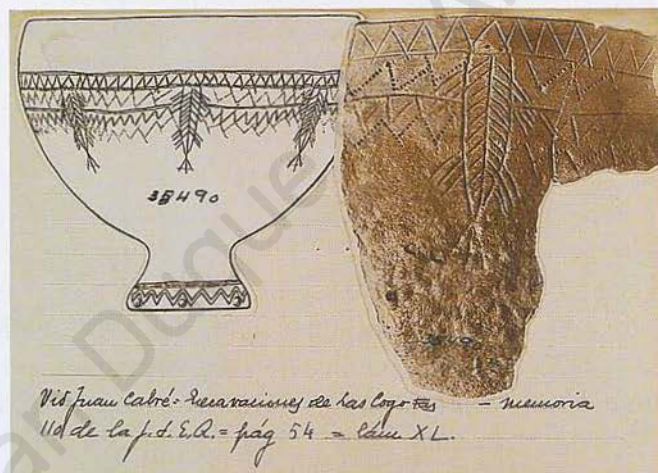 35490
Vid Juan Cabré = Excavaciones de Las Cogotas — memoria
110 de la J. S. E. A. = pág 54 = lám XL.